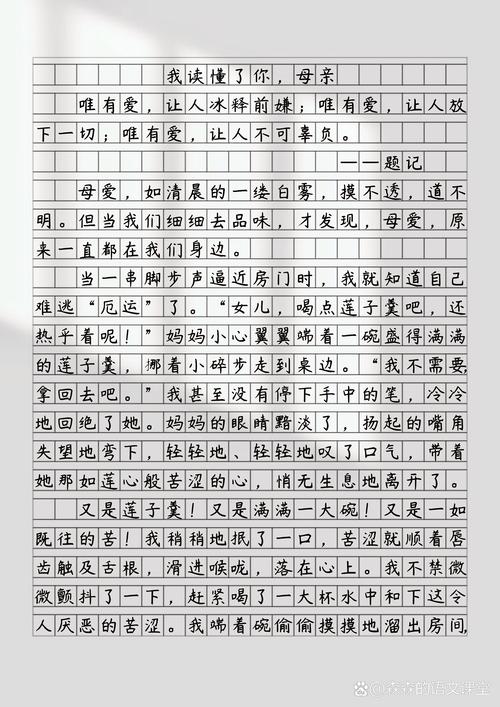 我读懂了你，母亲
唯有爱，让人冰释前嫌；唯有爱，让人放
下一切；唯有爱，让人不可辜负。
——题记
母爱，如清晨的一缕白雾，摸不透，道不
明。但当我们细细去品味，才发现，母爱，原
来一直都在我们身边。
当一串脚步声逼近房门时，我就知道自己
难逃“厄运”了。“女儿，喝点莲子羹吧，还
热乎着呢！”妈妈小心翼翼端着一碗盛得满满
的莲子羹，挪着小碎步走到桌边。“我不需要，
拿回去吧。”我甚至没有停下手中的笔，冷冷
地回绝了她。妈妈的眼睛黯淡了，扬起的嘴角
失望地弯下，轻轻地、轻轻地叹了口气，带着
她那如莲心般苦涩的心，悄无生息地离开了。
又是莲子羹！又是满满一大碗！又是一如
既往的苦！我稍稍地抿了一口，苦涩就顺着唇
齿触及舌根，滑进喉咙，落在心上。我不禁微
微颤抖了一下，赶紧喝了一大杯水中和下这令
人厌恶的苦涩。我端着碗偷偷摸摸地溜出房间，
@森森的语文课堂